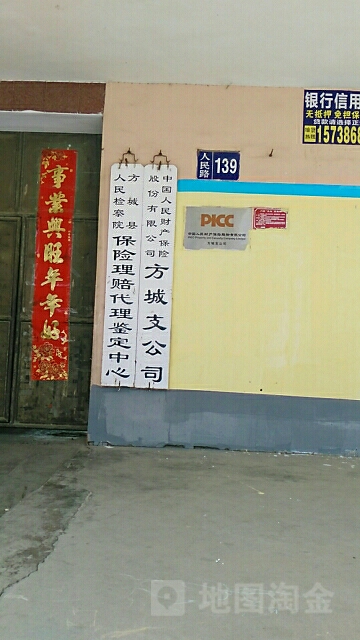 事業興旺年年好
方城县
人民检察院
保险理赔代理鉴定中心
中国人民财产保险
股份有限公司
方城支公司
人民路
139
PICC
中国人民财产保险股份有限公司
方城支公司
银行信用
无抵押 免担保
贷款请选择正
157386
地图淘金